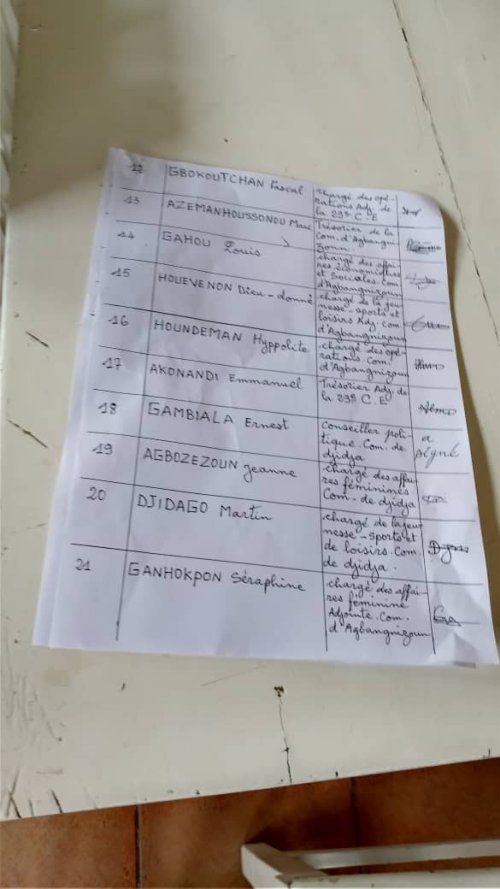 12 GBOKOUTCHAN Pascal chargé des opé-
rations Adj. de
la 23e C.E
13 AZEMANHOUSSONOU Marc Trésorier de la
Com. d'Agbangni
zoun
14 GAHOU Louis chargé des affai
res économiques
et Sociales. Com
d'Agbangnizoun
15 HOUEVENON Dieu-donné chargé de la jeu
nesse-sports et
loisirs Adj. Com
d'Agbangnizoun
16 HOUNDEMAN Hyppolite chargé des opé-
rations. Com.
d'Agbangnizoun
17 AKONANDI Emmanuel Trésorier Adj de
la 23e C.E
18 GAMBIALA Ernest conseiller poli- a
tique. Com. de signé
djidja
19 AGBOZEZOUN Jeanne chargé des affai
res féminines
Com. de djidja
20 DJIDAGO Martin chargé de la jeu
nesse-sports et
de loisirs. Com
de djidja.
21 GANHOKPON Séraphine chargé des affai
res féminine
Adjointe. Com.
d'Agbangnizoun